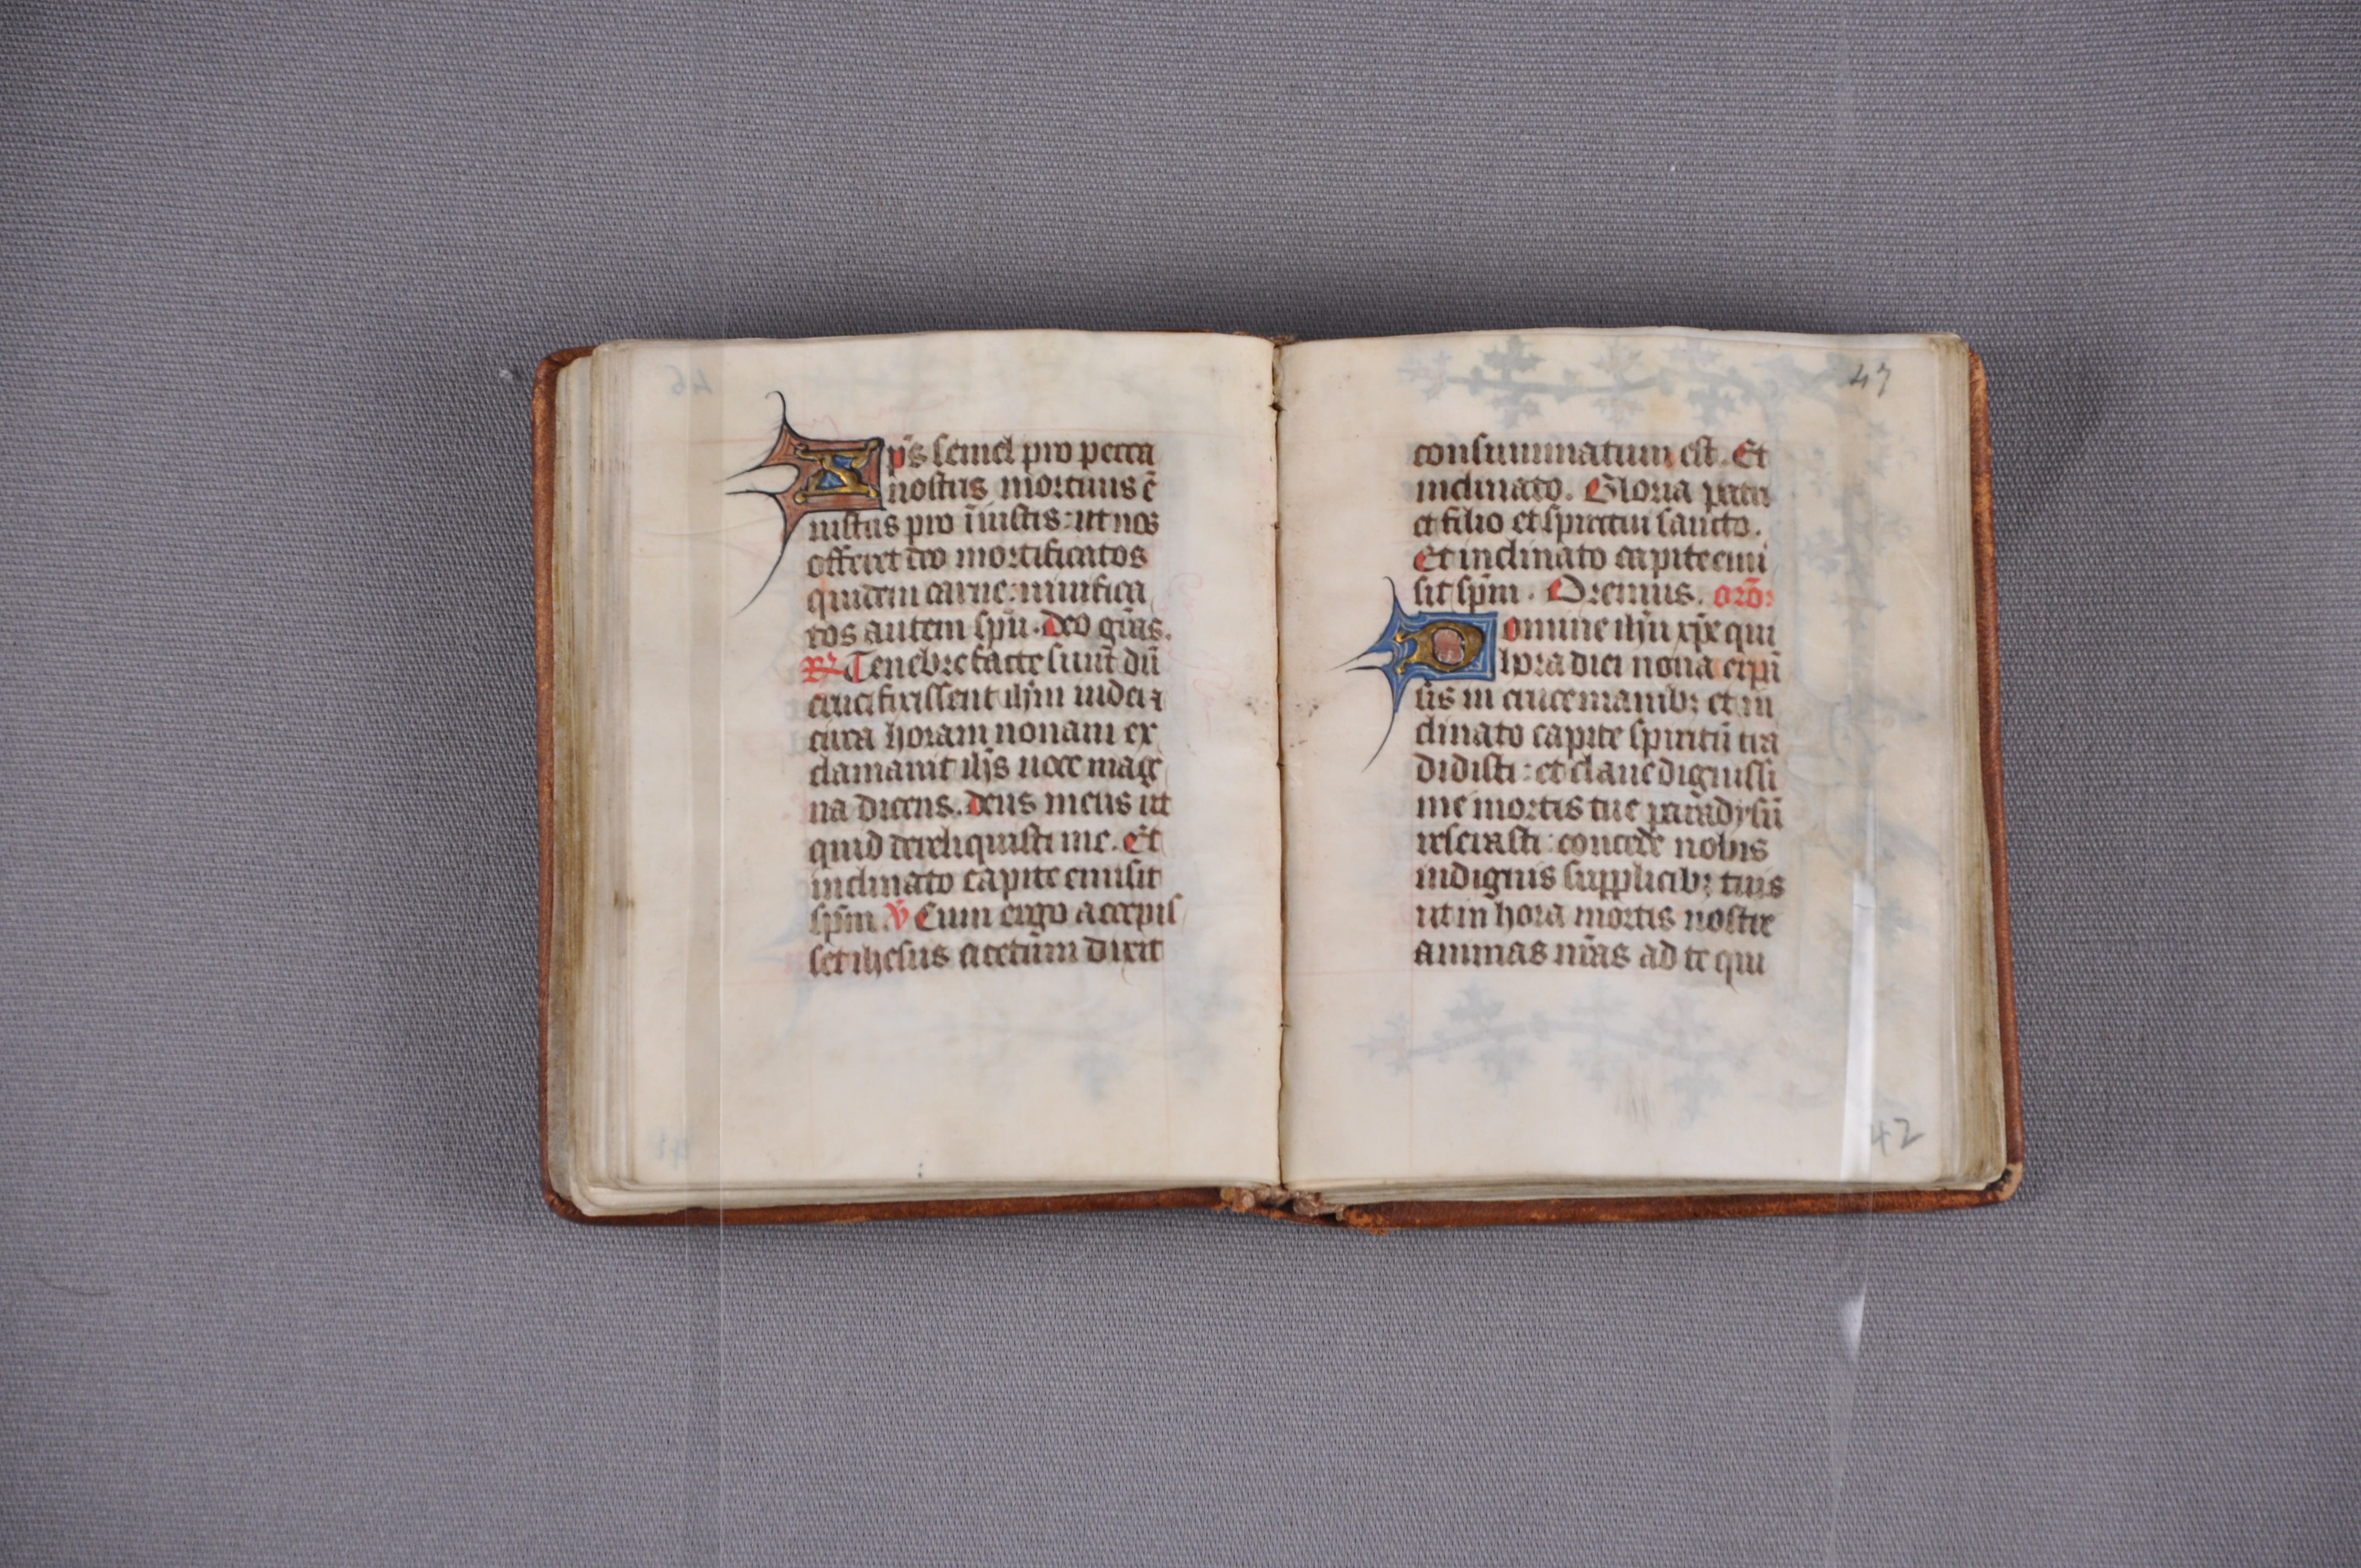 Xp̄s semel pro pecca
nostris mortuus ē
iustus pro īiustis: ut nos
offerret deo mortificatos
quidem carne: uiuifica
tos autem spū. Deo grās.
R Tenebre facte sunt dū
crucifixissent ihm iudei ⁊
circa horam nonam ex
clamauit ihs uoce mag
na dicens. Deus meus ut
quid dereliquisti me. Et
inclinato capite emisit
spm. V Cum ergo accepis
set ihesus acetum dixit
47
consummatum est. Et
inclinato. Gloria patri
et filio et spiritui sancto.
Et inclinato capite emi
sit spm. Oremus. orō:
Domine ihu xpe qui
hora diei nona expā
sis in cruce manibꝫ et in
clinato capite spiritū tra
didisti: et claue dignissi
me mortis tue paradysū
reserasti: concede nobis
indignis supplicibꝫ tuis
ut in hora mortis nostre
animas nrās ad te qui
42